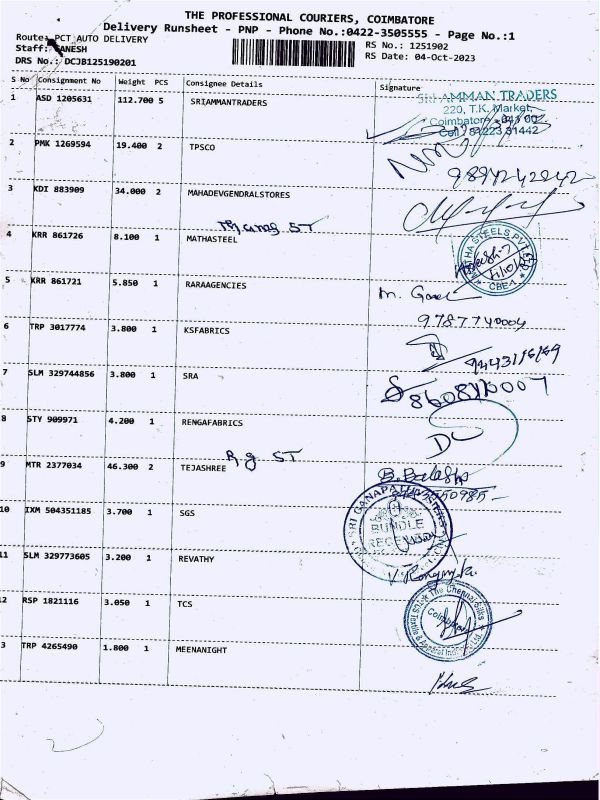 THE PROFESSIONAL COURIERS, COIMBATORE
Delivery Runsheet - PNP - Phone No.:0422-3505555 - Page No.:1
Route: PCT AUTO DELIVERY
Staff: GANESH
DRS No.: DCJB125190201
RS No.: 1251902
RS Date: 04-Oct-2023
S No Consignment No Weight PCS Consignee Details Signature
1 ASD 1205631 112.700 5 SRIAMMANTRADERS
SRI AMMAN TRADERS
220, T.K. Market,
Coimbatore - 641 00
Cell : 81223 31442
2 PMK 1269594 19.400 2 TPSCO
3 KDI 883909 34.000 2 MAHADEVGENDRALSTORES
ST
4 KRR 861726 8.100 1 MATHASTEEL
MATHA STEELS PVT LTD
CBE-1
5 KRR 861721 5.850 1 RARAAGENCIES
9787740004
6 TRP 3017774 3.800 1 KSFABRICS
7 SLM 329744856 3.800 1 SRA
8 STY 909971 4.200 1 RENGAFABRICS
R.g ST
9 MTR 2377034 46.300 2 TEJASHREE
10 IXM 504351185 3.700 1 SGS
SRI GANAPATHY
BUNDLE
RECEIVED
11 SLM 329773605 3.200 1 REVATHY
12 RSP 1821116 3.050 1 TCS
The Chennai Silks
Coimbatore
3 TRP 4265490 1.800 1 MEENANIGHT